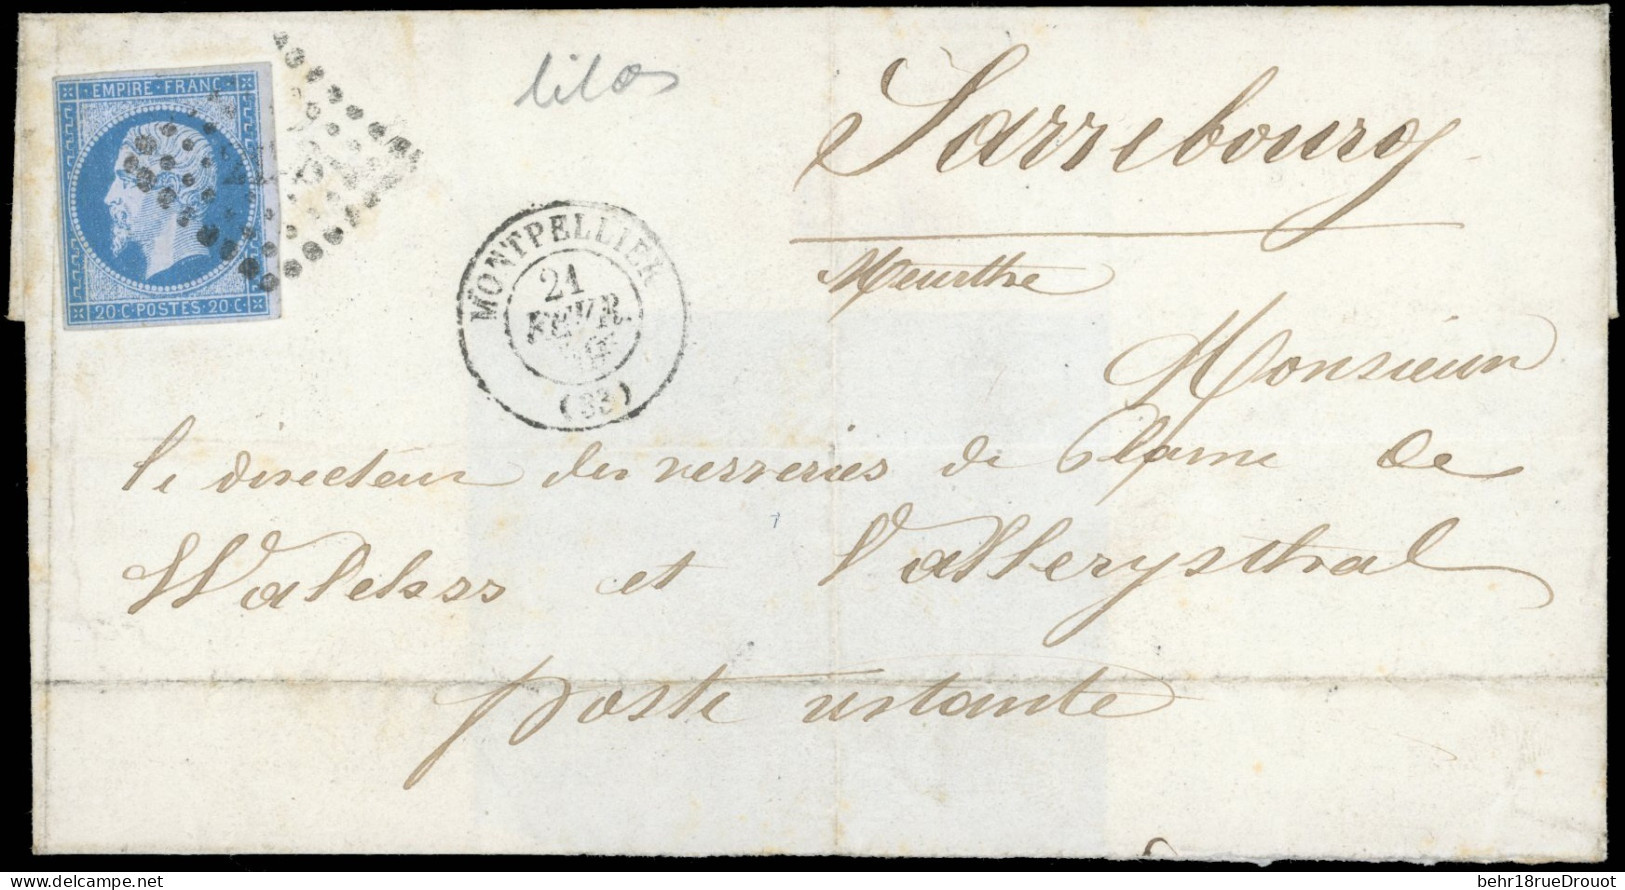 EMPIRE · FRANC ·
20 · C · POSTES · 20 · C ·
lilas
MONTPELLIER
21
FEVR.
Sarrebourg
Meurthe
Monsieur
le directeur des verreries de Plaine de
Walchss et Vallerysthal
poste restante
delcampe.net
behr18rueDrouot